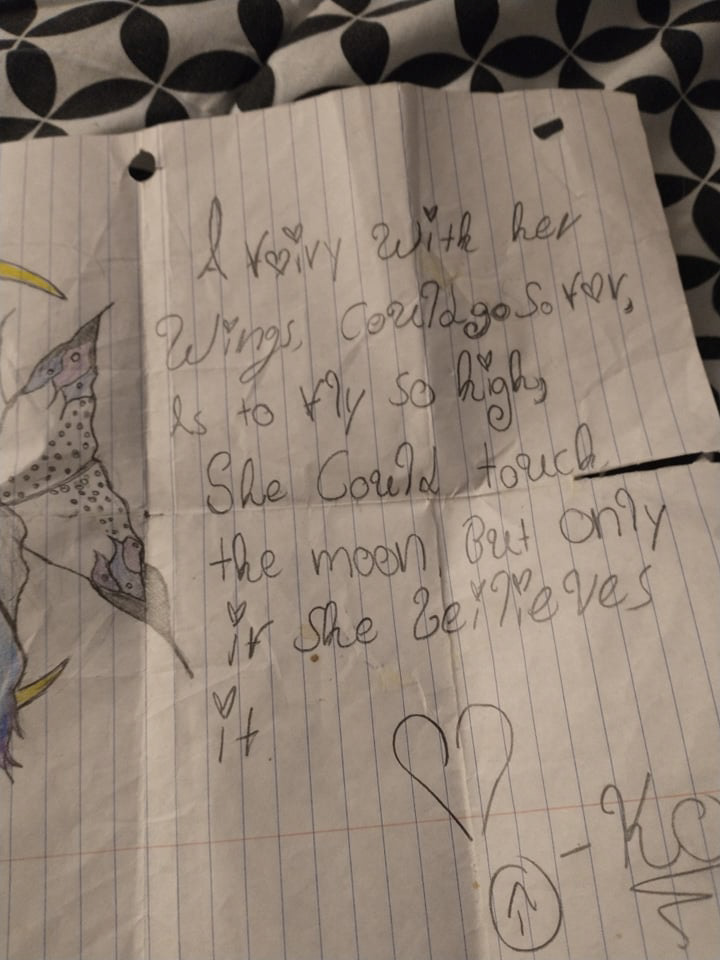 A fairy with her
Wings, Could go so far,
As to fly so high,
She Could touch
the moon. But only
if she beilieves
it
- KC